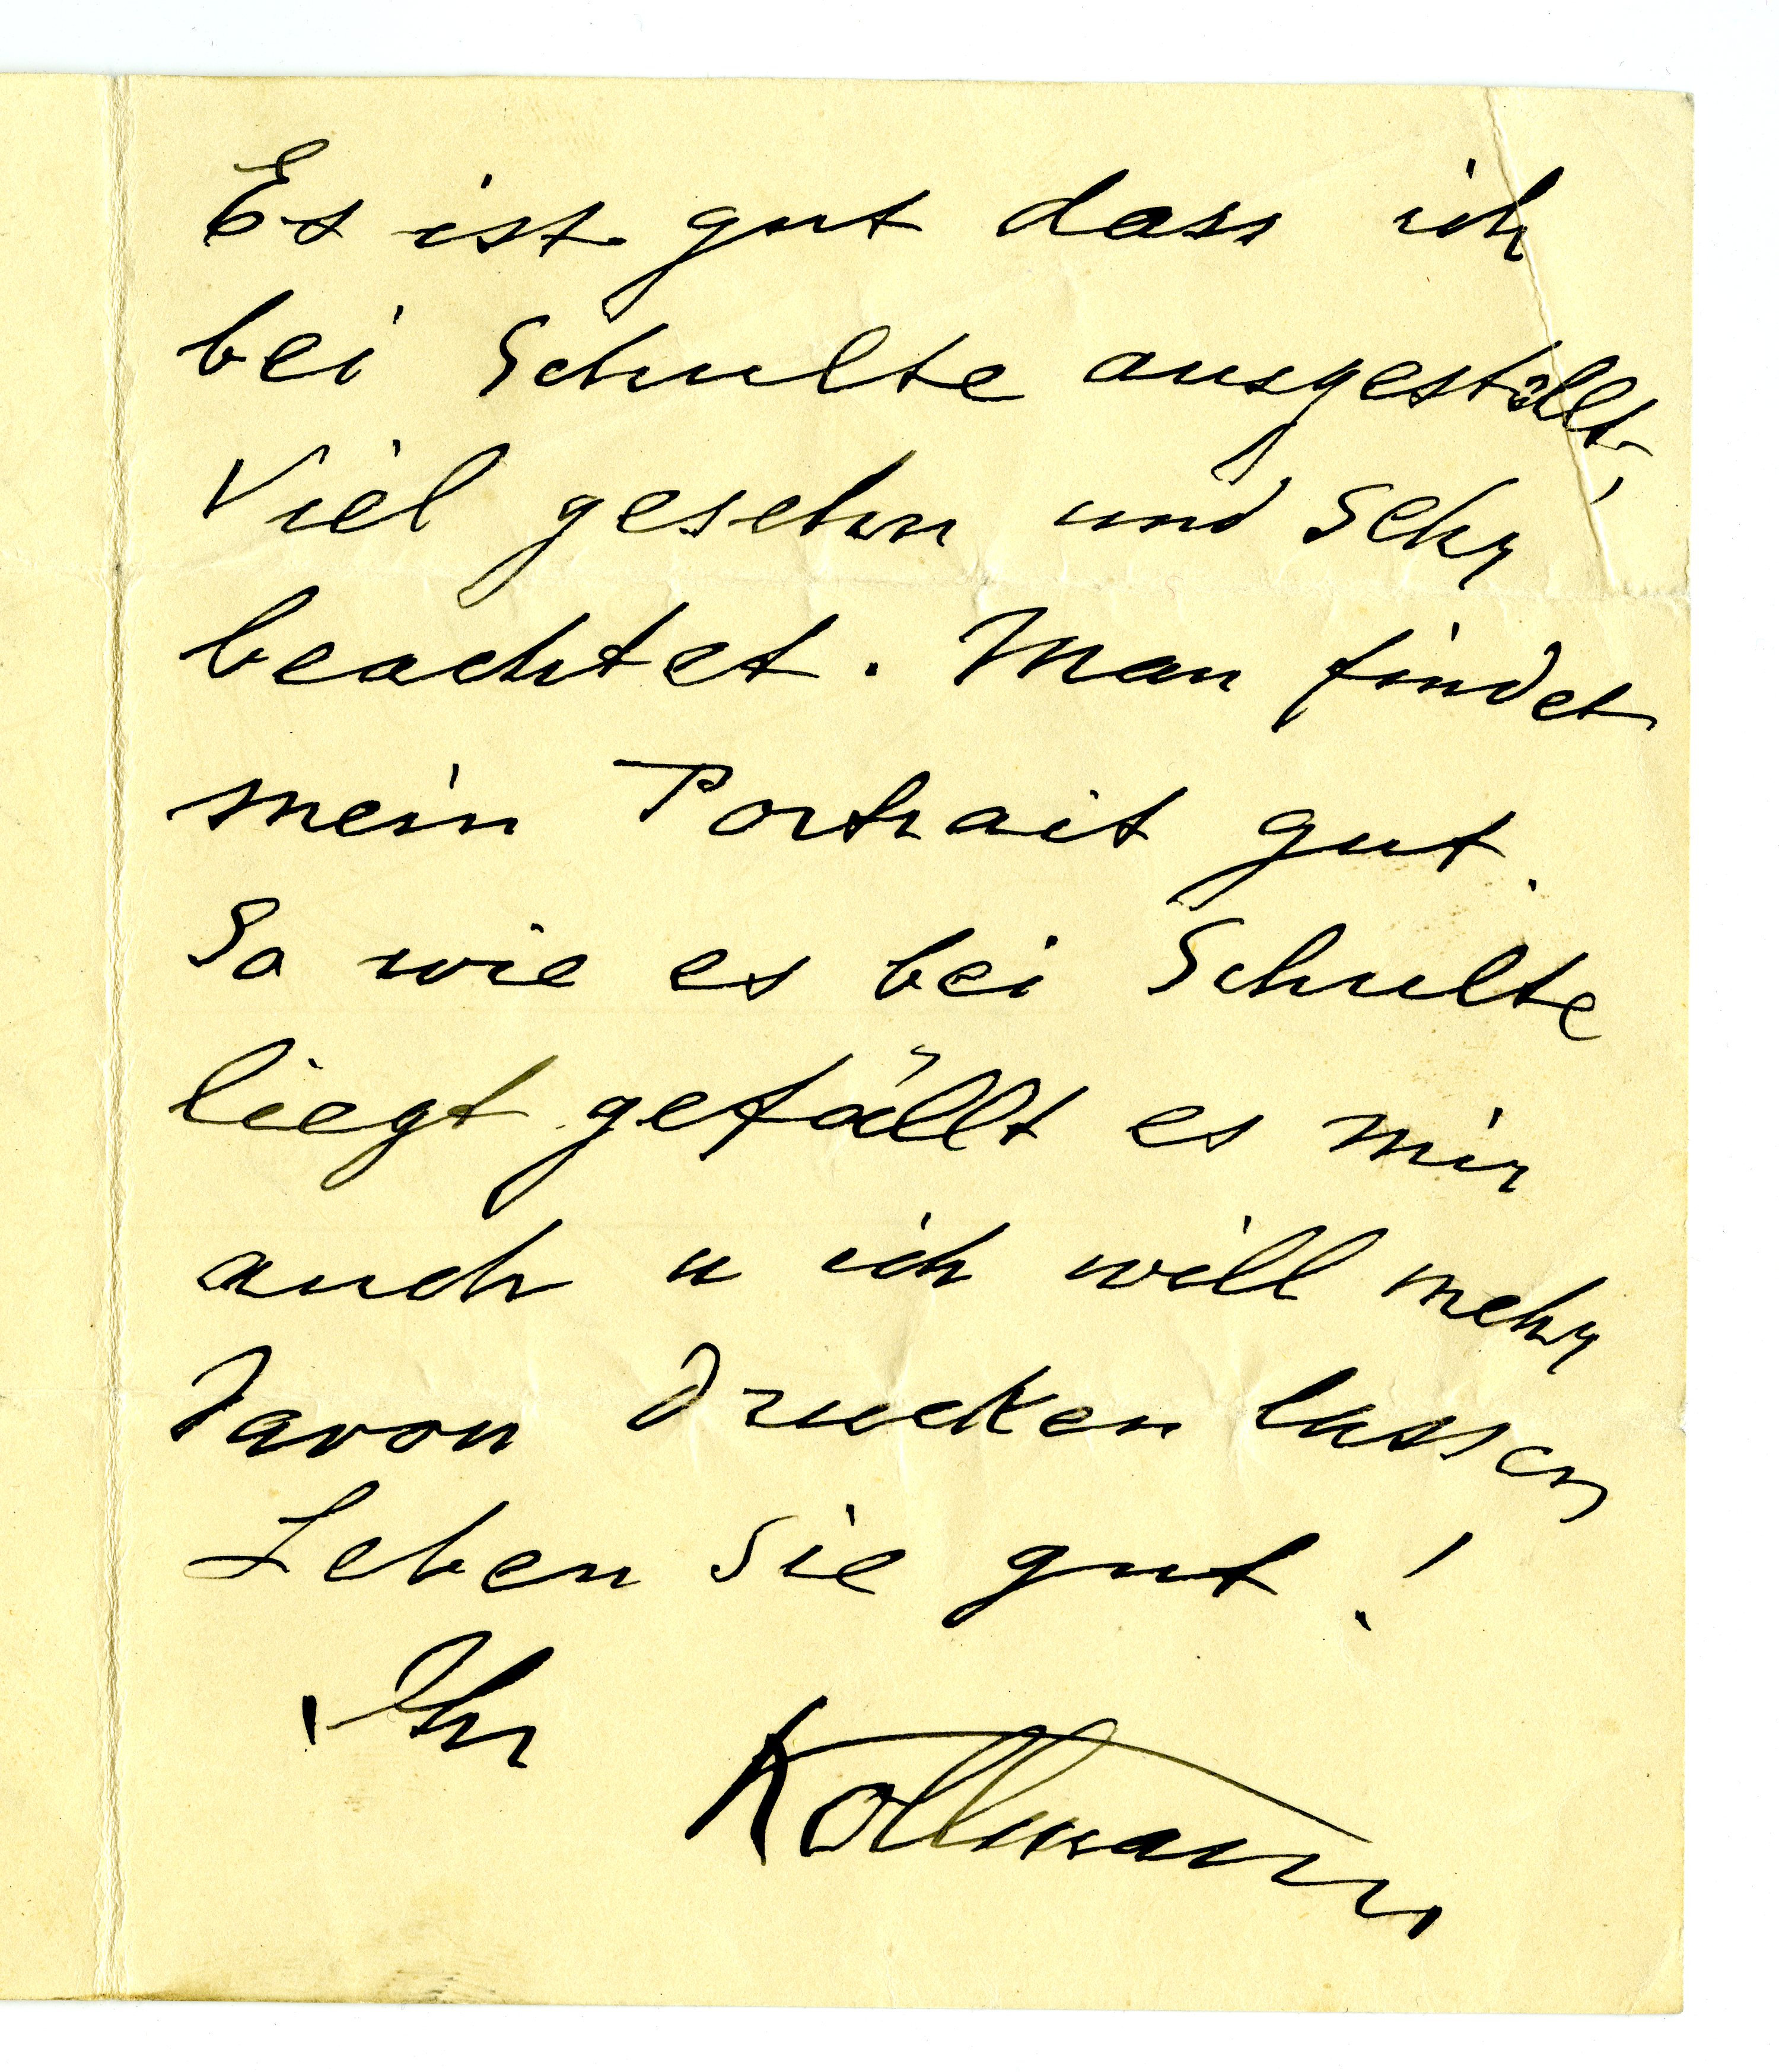 Es ist gut dass ich
bei Schulte ausgestellt,
Viel gesehn und sehr
beachtet. Man findet
mein Portrait gut.
So wie es bei Schulte
liegt gefällt es mir
auch u ich will mehr
davon drucken lassen
Leben Sie gut!
Ihr Kollmann